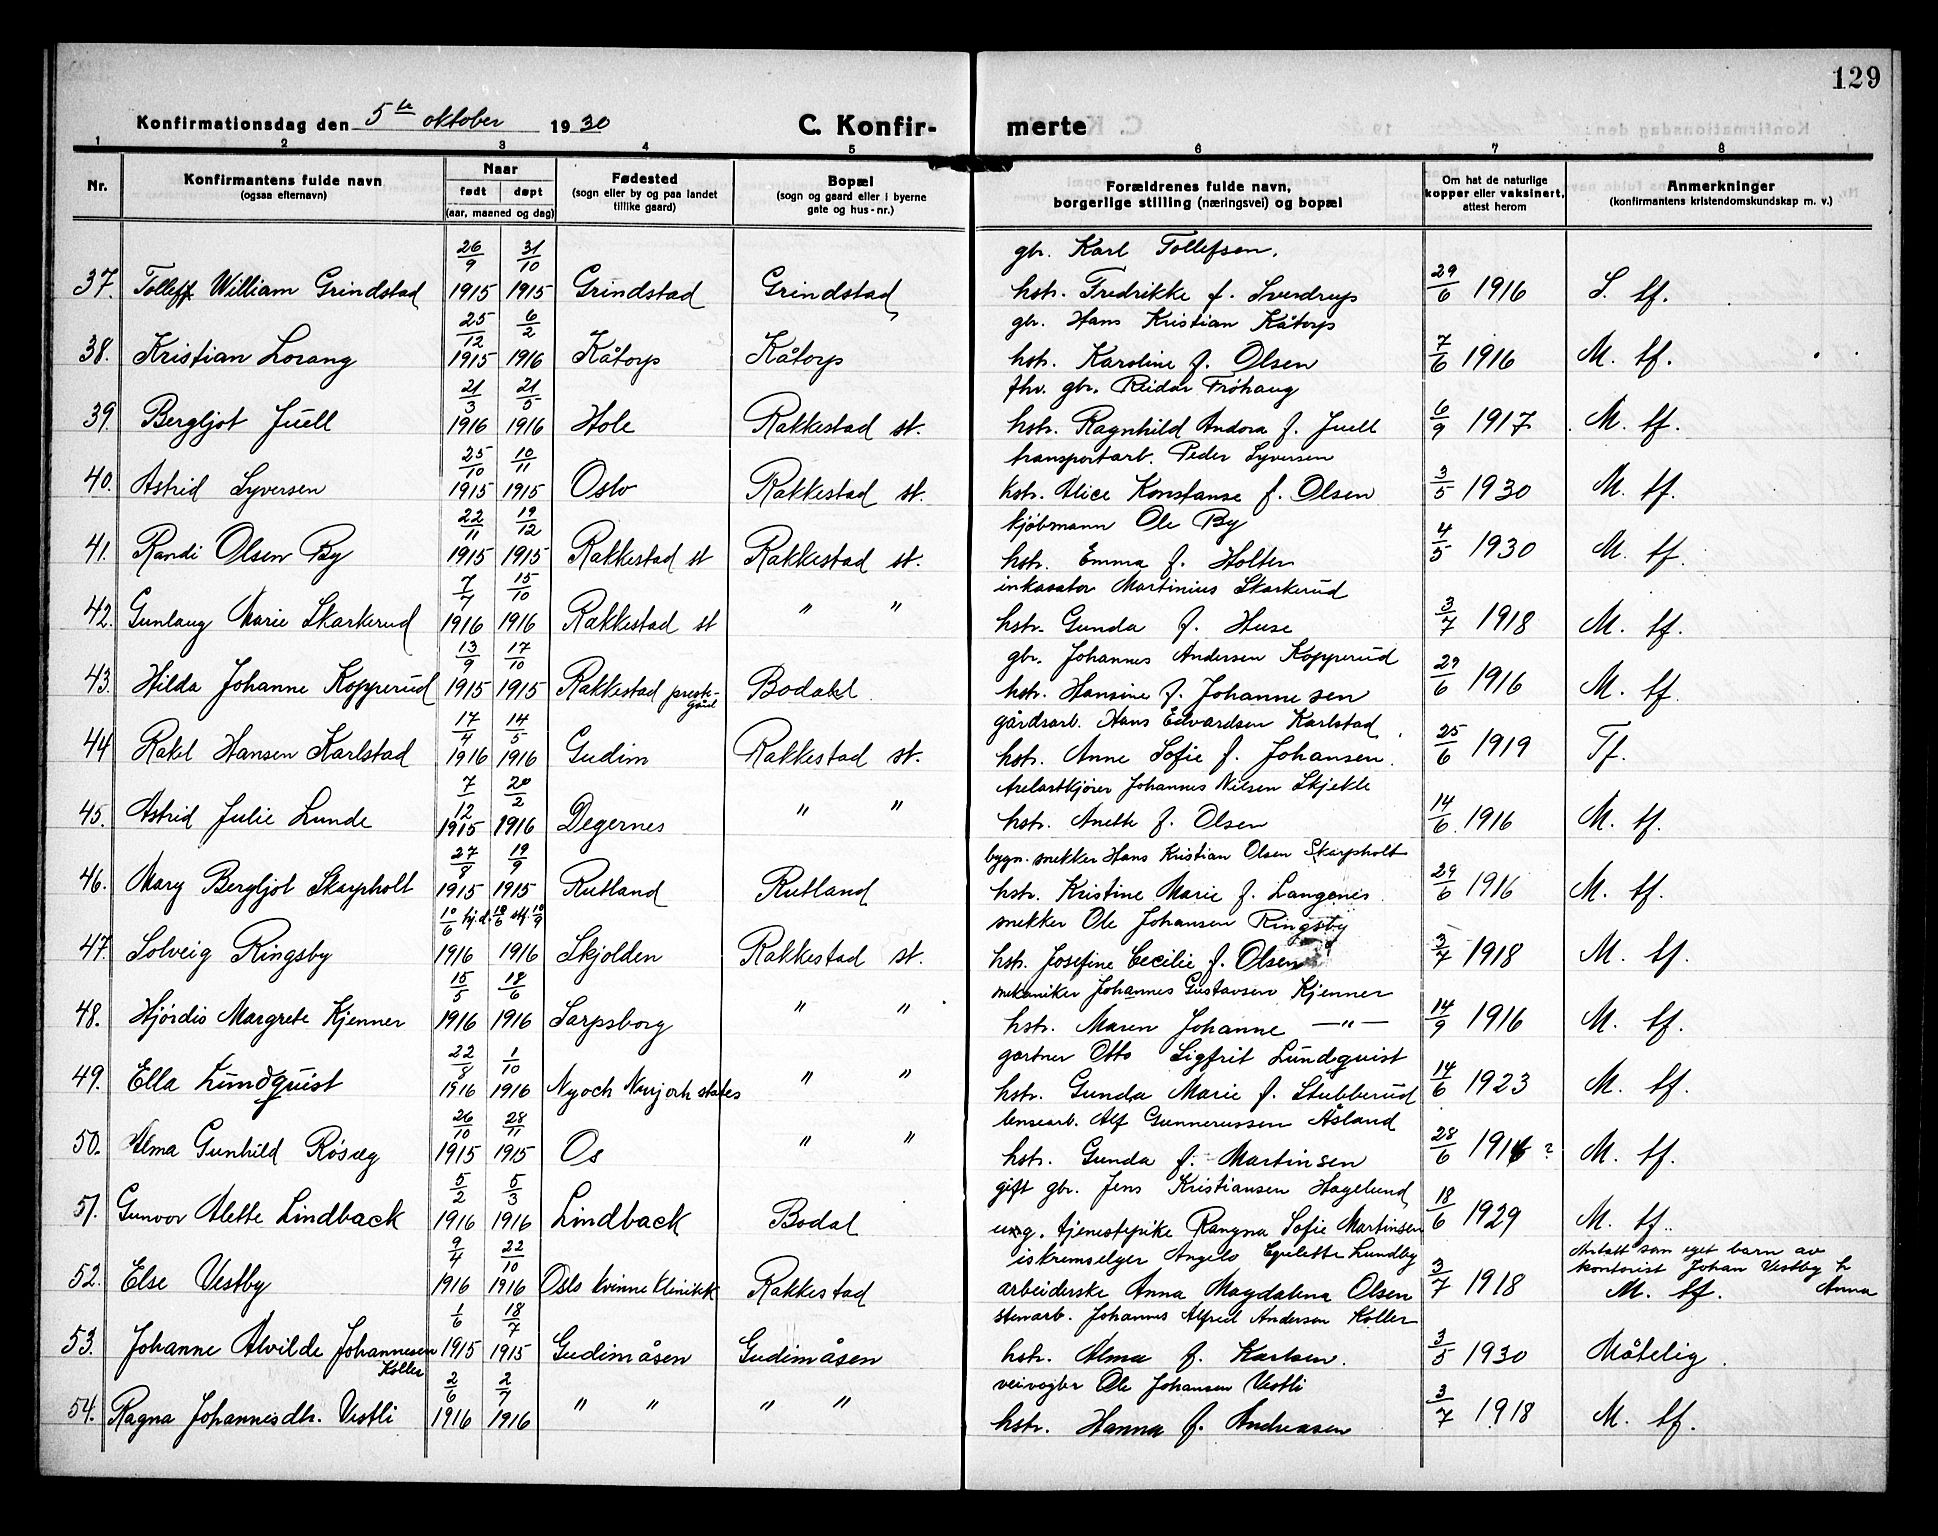 129
Konfirmationsdag den 5te oktober 1930 C. Konfir- merte
1 2 3 4 5 6 7 8
Nr.
Konfirmantens fulde navn
(ogsaa efternavn)
Naar
født døpt
(aar, maaned og dag)
Fødested
(sogn eller by og paa landet
tillike gaard)
Bopæl
(sogn og gaard eller i byerne
gate og hus-nr.)
Forældrenes fulde navn,
borgerlige stilling (næringsvei) og bopæl
Om hat de naturlige
kopper eller vaksinert,
attest herom
Anmerkninger
(konfirmantens kristendomskundskap m. v.)
26/9 31/10 gbr. Karl Tollefsen.
37. Tolleff William Grindstad 1915 1915 Grindstad Grindstad hstr. Fredrikke f. Sverdrup 29/6 1916 S. tf.
25/12 6/2 gbr. Hans Kristian Kåtorp
38. Kristian Lorang 1915 1916 Kåtorp Kåtorp hstr. Karoline f. Olsen 7/6 1916 M. tf.
21/3 21/5 fhv. gbr. Reidar Frøhaug
39. Bergljot Juell 1916 1916 Hole Rakkestad st. hstr. Ragnhild Andora f. Juell 6/9 1917 M. tf.
25/10 10/11 transportarb. Peder Syversen
40. Astrid Syversen 1915 1915 Oslo Rakkestad st. hstr. Alice Konstanse f. Olsen 3/5 1930 M. tf.
22/11 19/12 kjøbmann Ole By
41. Randi Olsen By 1915 1915 Rakkestad st Rakkestad st. hstr. Emma f. Holter 4/5 1930 M. tf.
7/7 15/10 inkasator Martinius Skarkerud
42. Gunlaug Marie Skarkerud 1916 1916 Rakkestad st " " hstr. Gunda f. Huse 3/7 1918 M. tf.
13/9 17/10 gbr. Johannes Andersen Kopperud
43. Hilda Johanne Kopperud 1915 1915 Rakkestad preste- gård Bodahl hstr. Hansine f. Johannesen 29/6 1916 M. tf.
17/4 14/5 gårdsarb. Hans Edvardsen Karlstad
44 Rakel Hansen Karlstad 1916 1916 Gudim Rakkestad st. hstr. Anne Sofie f. Johansen. 25/6 1919 Tf.
7/12 20/2 Johannes Nilsen Skjekle
45. Astrid Julie Lunde 1915 1916 Degernes " " hstr. Anette f. Olsen 14/6 1916 M. tf.
27/8 19/9 bygn. snekker Hans Kristian Olsen Skarpholt
46. Mary Bergljot Skarpholt 1915 1915 Rutland Rutland hstr. Kristine Marie f. Langenes. 29/6 1916 M. tf.
10/6 hj.d. 10/6 stf. 10/9 snekker Ole Johansen Ringsby
47. Solveig Ringsby 1916 1916 Skjolden Rakkestad st. hstr. Josefine Cecilie f. Olsen 3/7 1918 M. tf.
15/5 18/6 mekaniker Johannes Gustavsen Kjenner
48. Hjørdis Margrete Kjenner 1916 1916 Sarpsborg " " hstr. Maren Johanne —"— 14/9 1916 M. tf.
22/8 1/10 gartner Otto Sigfrit Lundquist
49. Ella Lundquist 1916 1916 Nyoch Nurjork states " " hstr. Gunda Marie f. Stubberud 14/6 1923 M. tf.
26/10 28/11 lensearb. Alf Gunnerussen Åsland
50. Alma Gunhild Røsæg 1915 1915 Os " " hstr. Gunda f. Martinsen 28/6 1916 ? M. tf.
5/2 5/3 gift gbr. Jens Kristiansen Hagelund
51. Gunvor Alette Lindback 1916 1916 Lindback Bodal ung. tjenestepike Rangna Sofie Martinsen 18/6 1929 M. tf.
9/4 22/10 iskremselger Angelo Lundby Antatt som eget barn av
kontorist Johan Vestby h
52. Else Vestby 1916 1916 Oslo kvinneklinikk Rakkestad arbeiderske Anna Magdalena Olsen 3/7 1918 M. tf. Anna
1/6 18/7 stenarb. Johannes Alfred Andersen Koller
53. Johanne Alvilde Johannesen Koller 1915 1915 Gudimåsen Gudimåsen hstr. Alma f. Karlsen. 3/5 1930 Måtelig.
2/6 2/7 veivogter Ole Johansen Vestli
54. Ragna Johannesdtr. Vestli 1916 1916 " " " " hstr. Hanna f. Andreasen 3/7 1918 M. tf.